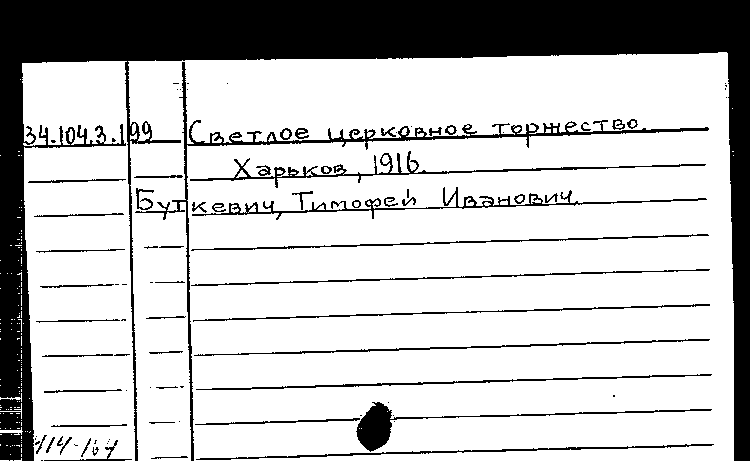 34.104.3.199 Светлое церковное торжество.
Харьков, 1916.
Буткевич, Тимофей Иванович.
114-164